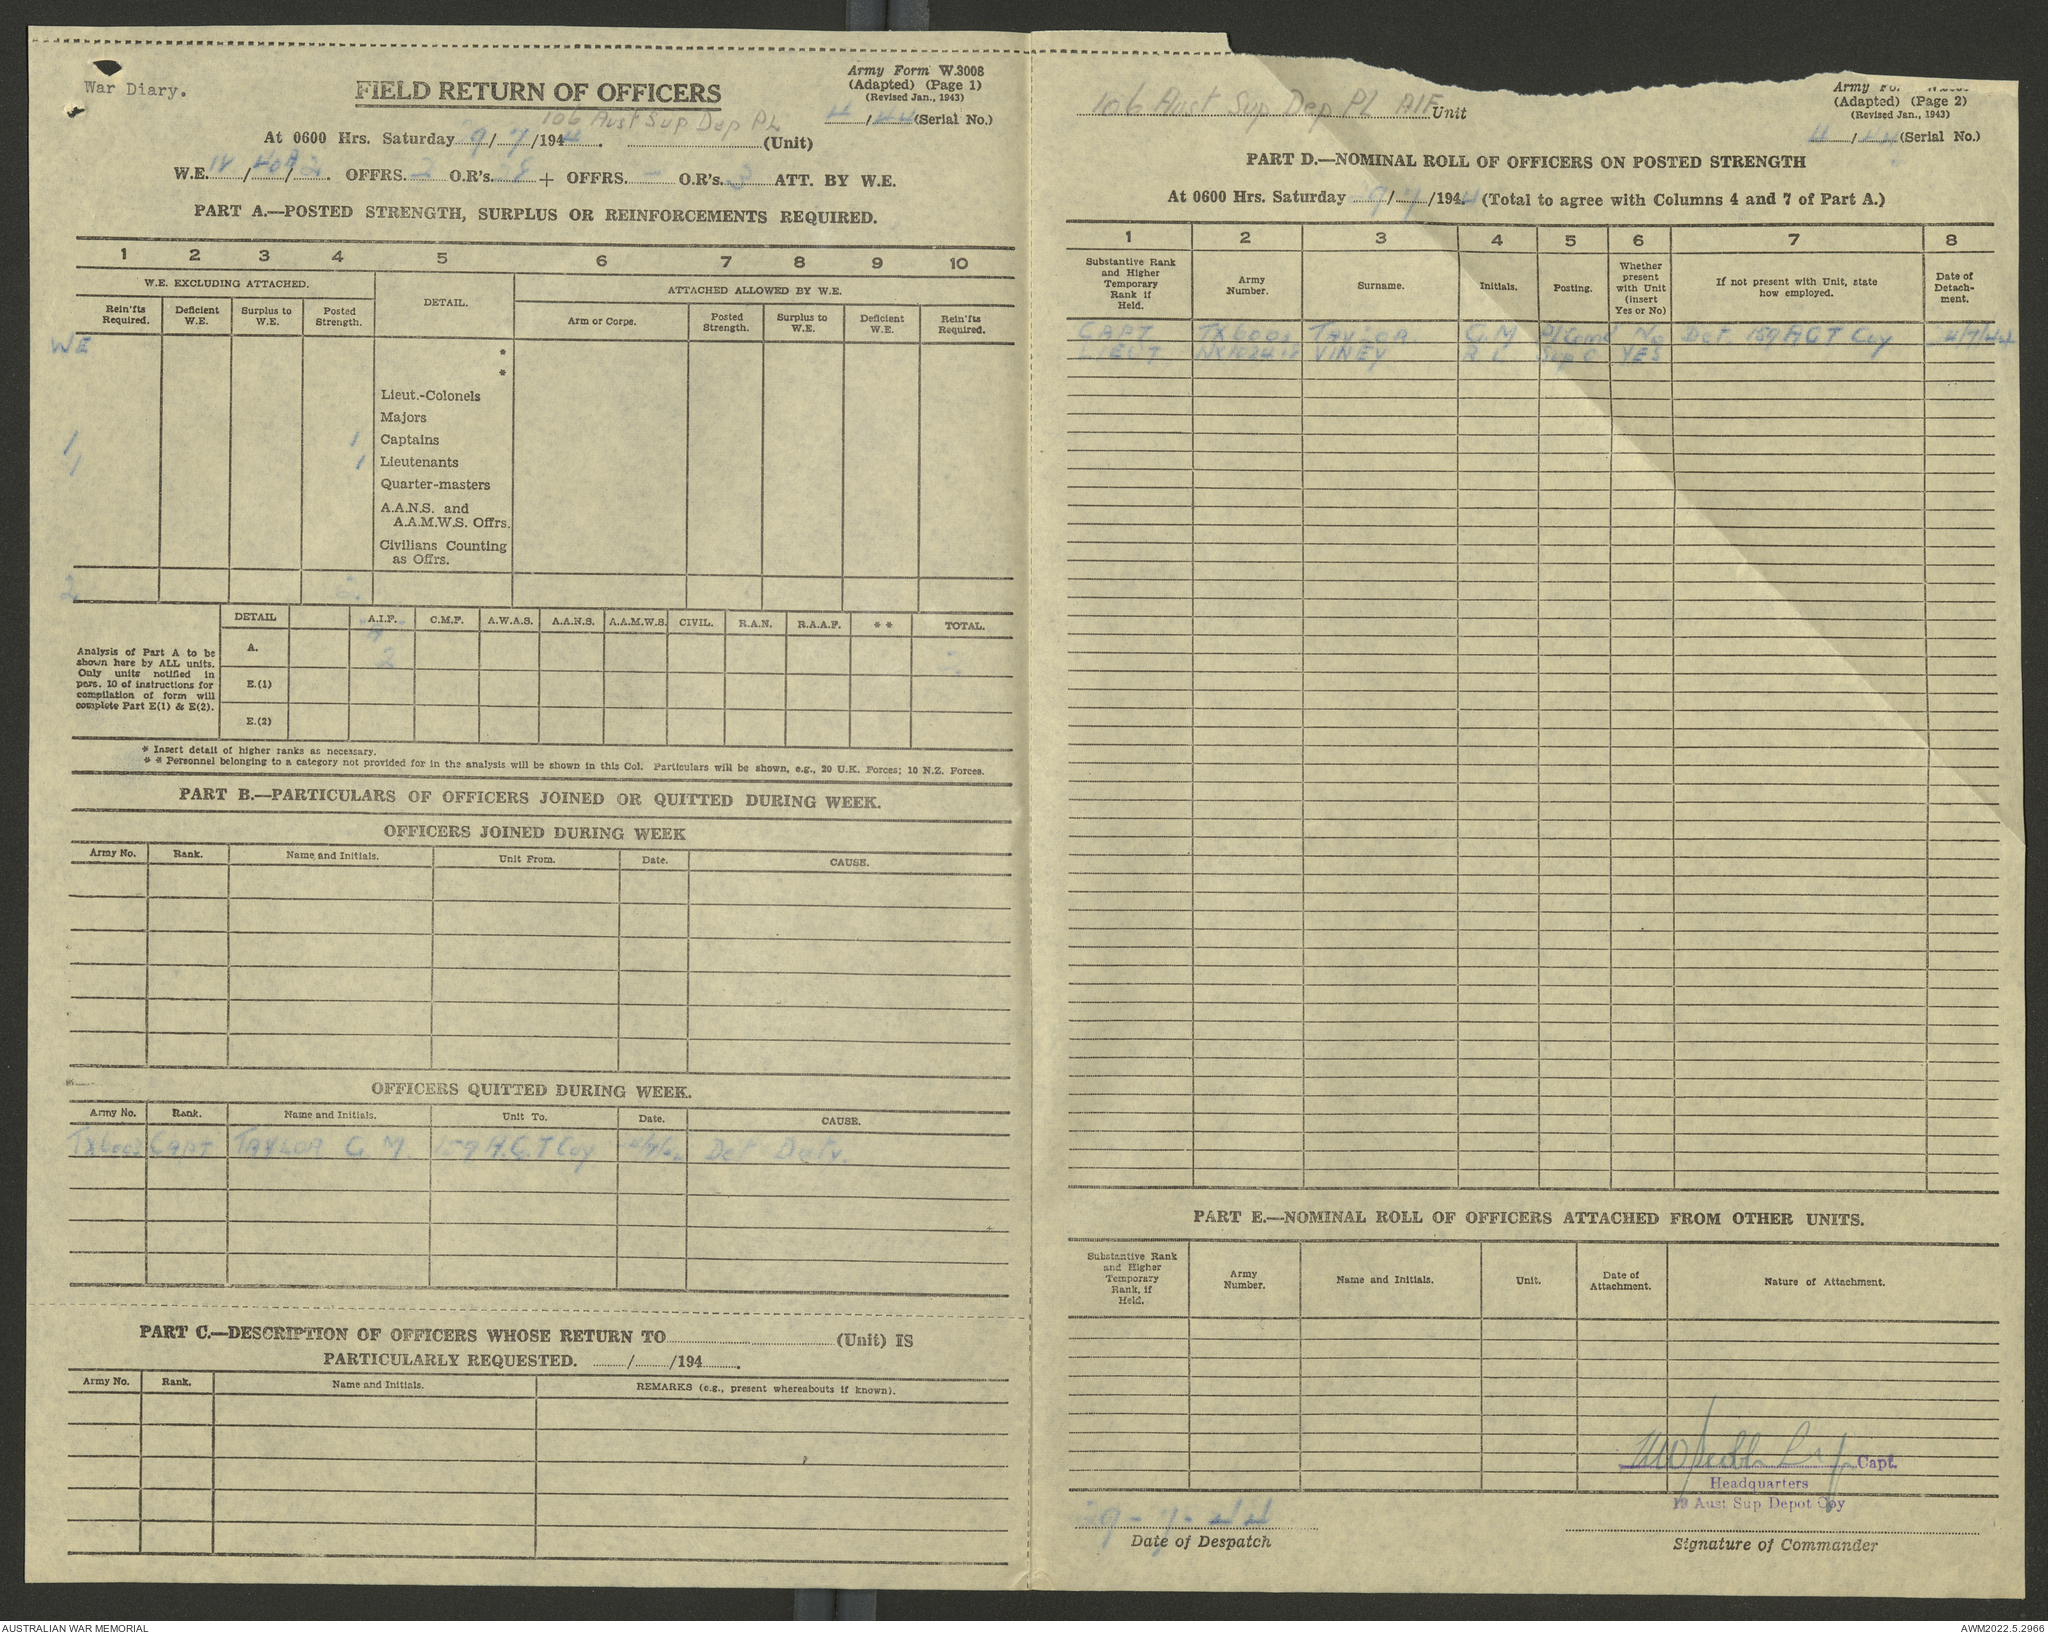 War Diary.
FIELD RETURN OF OFFICERS
Army Form W.3008
(Adapted) (Page 1)
(Revised Jan., 1943)
4/44 (Serial No.)
106 Aust Sup Dep PL
At 0600 Hrs. Saturday 9/7/1944. (Unit)
W.E. / / 2. OFFRS. 2 O.R's. 28 + OFFRS. - O.R's. 3 ATT. BY W.E.
PART A.—POSTED STRENGTH, SURPLUS OR REINFORCEMENTS REQUIRED.
1 2 3 4 5 6 7 8 9 10
W.E. EXCLUDING ATTACHED. DETAIL. ATTACHED ALLOWED BY W.E.
Rein'fts Required. Deficient W.E. Surplus to W.E. Posted Strength. Arm or Corps. Posted Strength. Surplus to W.E. Deficient W.E. Rein'fts Required.
WE
*
*
Lieut.-Colonels
Majors
1 1 Captains
1 1 Lieutenants
Quarter-masters
A.A.N.S. and
A.A.M.W.S. Offrs.
Civilians Counting
as Offrs.
2 2
Analysis of Part A to be
shown here by ALL units.
Only units notified in
para. 10 of instructions for
compilation of form will
complete Part E(1) & E(2).
DETAIL A.I.F. C.M.F. A.W.A.S. A.A.N.S. A.A.M.W.S. CIVIL. R.A.N. R.A.A.F. * * TOTAL.
A. 2 2
E.(1)
E.(2)
* Insert detail of higher ranks as necessary.
* * Personnel belonging to a category not provided for in the analysis will be shown in this Col. Particulars will be shown, e.g., 20 U.K. Forces; 10 N.Z. Forces.
PART B.—PARTICULARS OF OFFICERS JOINED OR QUITTED DURING WEEK.
OFFICERS JOINED DURING WEEK
Army No. Rank. Name and Initials. Unit From. Date. CAUSE.
OFFICERS QUITTED DURING WEEK.
Army No. Rank. Name and Initials. Unit To. Date. CAUSE.
TX6003 CAPT TAYLOR G. M. 159 A.G.T Coy Det Duty.
PART C.—DESCRIPTION OF OFFICERS WHOSE RETURN TO (Unit) IS
PARTICULARLY REQUESTED. / /194 .
Army No. Rank. Name and Initials. REMARKS (e.g., present whereabouts if known).
106 Aust Sup Dep PL AIF Unit
Army Fo.
(Adapted) (Page 2)
(Revised Jan., 1943)
4/44 (Serial No.)
PART D.—NOMINAL ROLL OF OFFICERS ON POSTED STRENGTH
At 0600 Hrs. Saturday 9/7/1944 (Total to agree with Columns 4 and 7 of Part A.)
1 2 3 4 5 6 7 8
Substantive Rank and Higher Temporary Rank if Held. Army Number. Surname. Initials. Posting. Whether present with Unit (insert Yes or No) If not present with Unit, state how employed. Date of Detach- ment.
CAPT TX6003 TAYLOR G.M Pl Comd No Det 159 AGT Coy 4/7/44
LIEUT VINEY R. L. Sup O YES
PART E.—NOMINAL ROLL OF OFFICERS ATTACHED FROM OTHER UNITS.
Substantive Rank and Higher Temporary Rank, if Held. Army Number. Name and Initials. Unit. Date of Attachment. Nature of Attachment.
Capt.
Headquarters
19 Aust Sup Depot Coy
9-7-44
Date of Despatch
Signature of Commander
AUSTRALIAN WAR MEMORIAL
AWM2022.5.2966